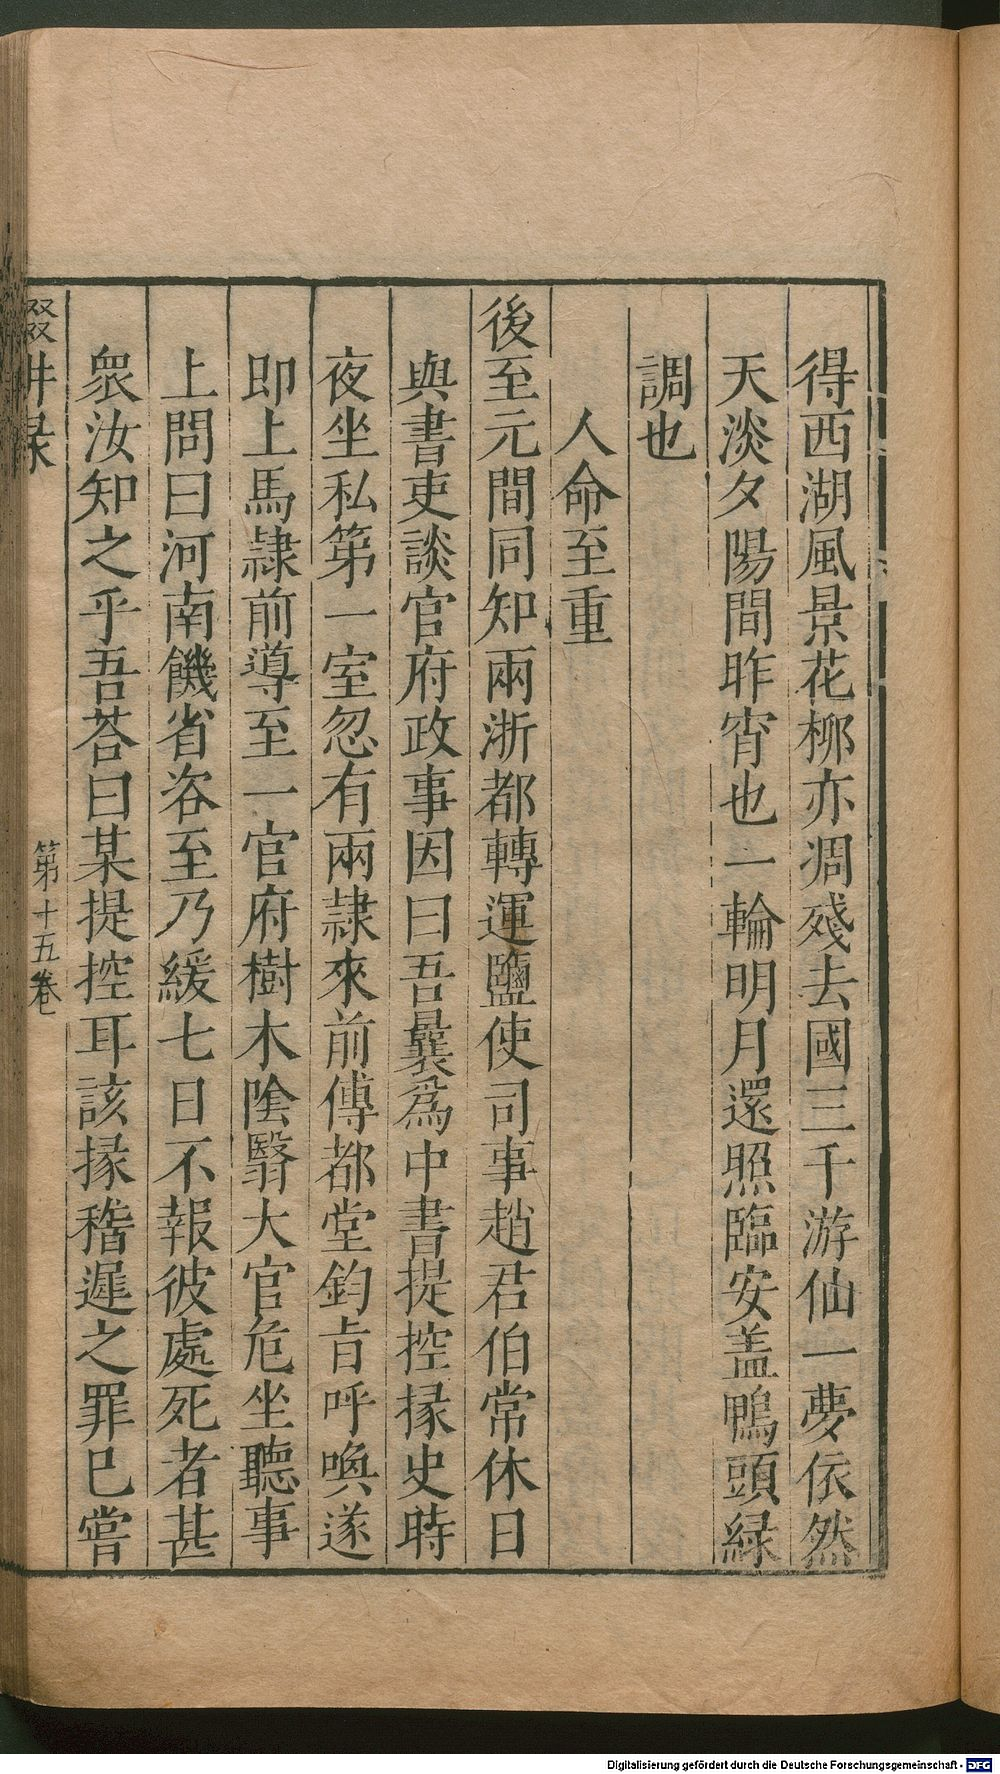 得西湖風景花柳亦凋殘去國三千游仙一夢依然
天淡夕陽間昨宵也一輪明月還照臨安盖鴨頭緑
調也
人命至重
後至元間同知兩浙都轉運鹽使司事趙君伯常休日
與書吏談官府政事因曰吾曩爲中書提控掾史時
夜坐私第一室忽有兩隷來前傳都堂鈞㫖呼喚遂
即上馬隷前導至一官府樹木陰翳大官危坐聽事
上問曰河南饑省咨至乃緩七日不報彼處死者甚
衆汝知之乎吾荅曰某提控耳該掾稽遲之罪已嘗
輟耕录
第十五卷
Digitalisierung gefördert durch die Deutsche Forschungsgemeinschaft - DFG